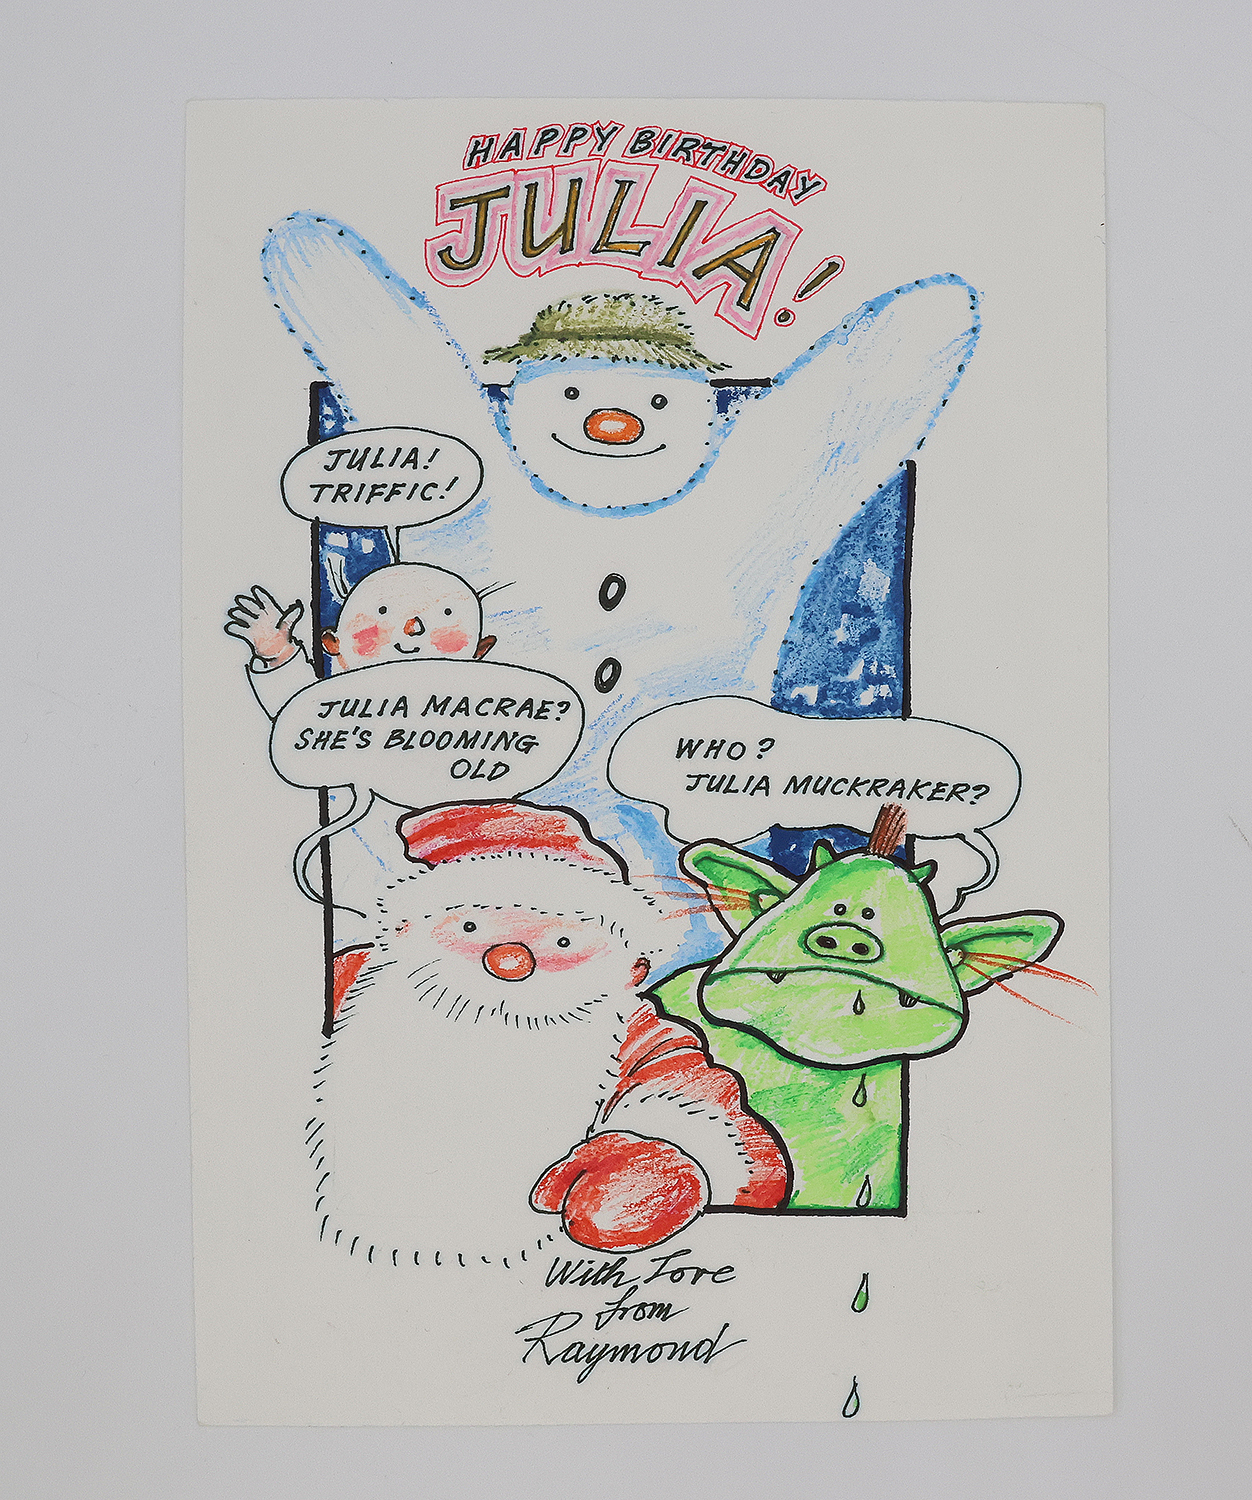 HAPPY BIRTHDAY
JULIA!
JULIA!
TRIFFIC!
JULIA MACRAE?
SHE'S BLOOMING
OLD
WHO?
JULIA MUCKRAKER?
With Love
from
Raymond